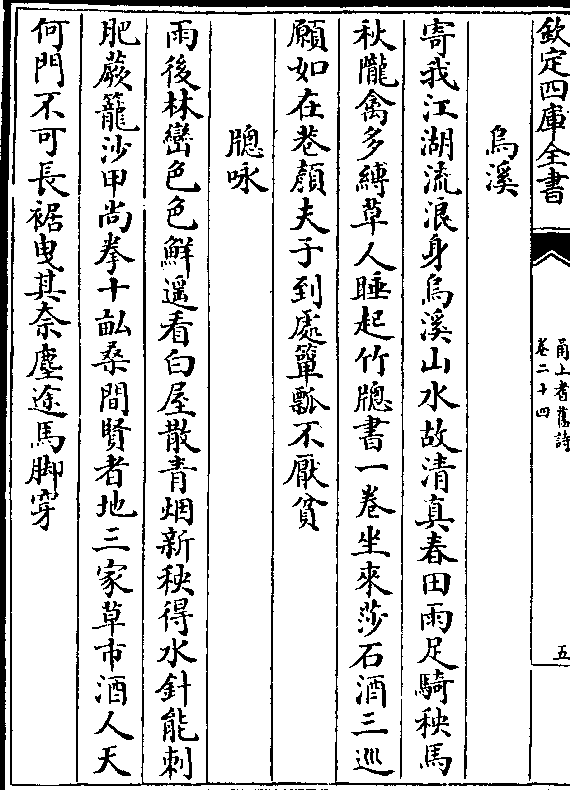 欽定四庫全書
甬上耆舊詩
卷二十四
五
烏溪
寄我江湖流浪身烏溪山水故清真春田雨足騎秧馬
秋隴禽多縛草人睡起竹牕書一卷坐來莎石酒三巡
願如在巷顔夫子到處簞瓢不厭貧
牕咏
雨後林巒色色鮮遥看白屋散青烟新秧得水針能刺
肥蕨籠沙甲尚拳十畝桑間賢者地三家草市酒人天
何門不可長裾曳其奈塵途馬脚穿